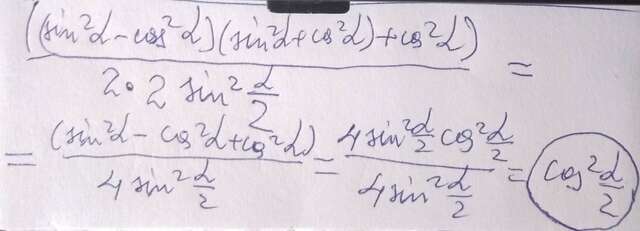 ((sin²α - cos²α)(sin²α + cos²α) + cos²α) / (2 · 2 sin² α/2) =
= (sin²α - cos²α + cos²α) / (4 sin² α/2) = (4 sin² α/2 cos² α/2) / (4 sin² α/2) = cos² α/2